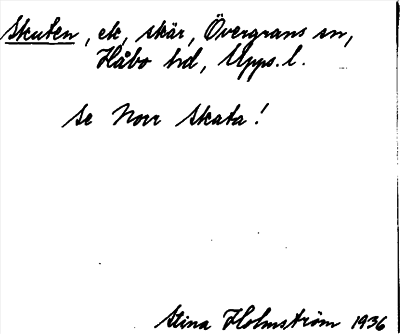 Skuten, ek, skär, Övergrans sn,
Håbo hd, Upps. l.
Se Norr Skata!
Stina Holmström 1936